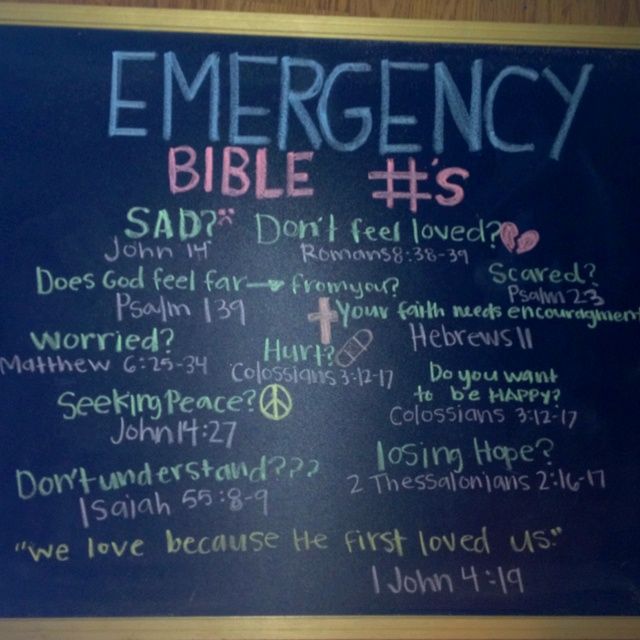 EMERGENCY
BIBLE #'s
SAD? Don't feel loved?
John 14 Romans 8:38-39
Does God feel far → from you? Scared?
Psalm 139 Psalm 23
Your faith needs encouragment
Worried? Hurt? Hebrews 11
Matthew 6:25-34 Colossians 3:12-17
Do you want
to be HAPPY?
Seeking Peace? Colossians 3:12-17
John 14:27
Don't understand??? losing Hope?
Isaiah 55:8-9 2 Thessalonians 2:16-17
"We love because He first loved us."
1 John 4:19